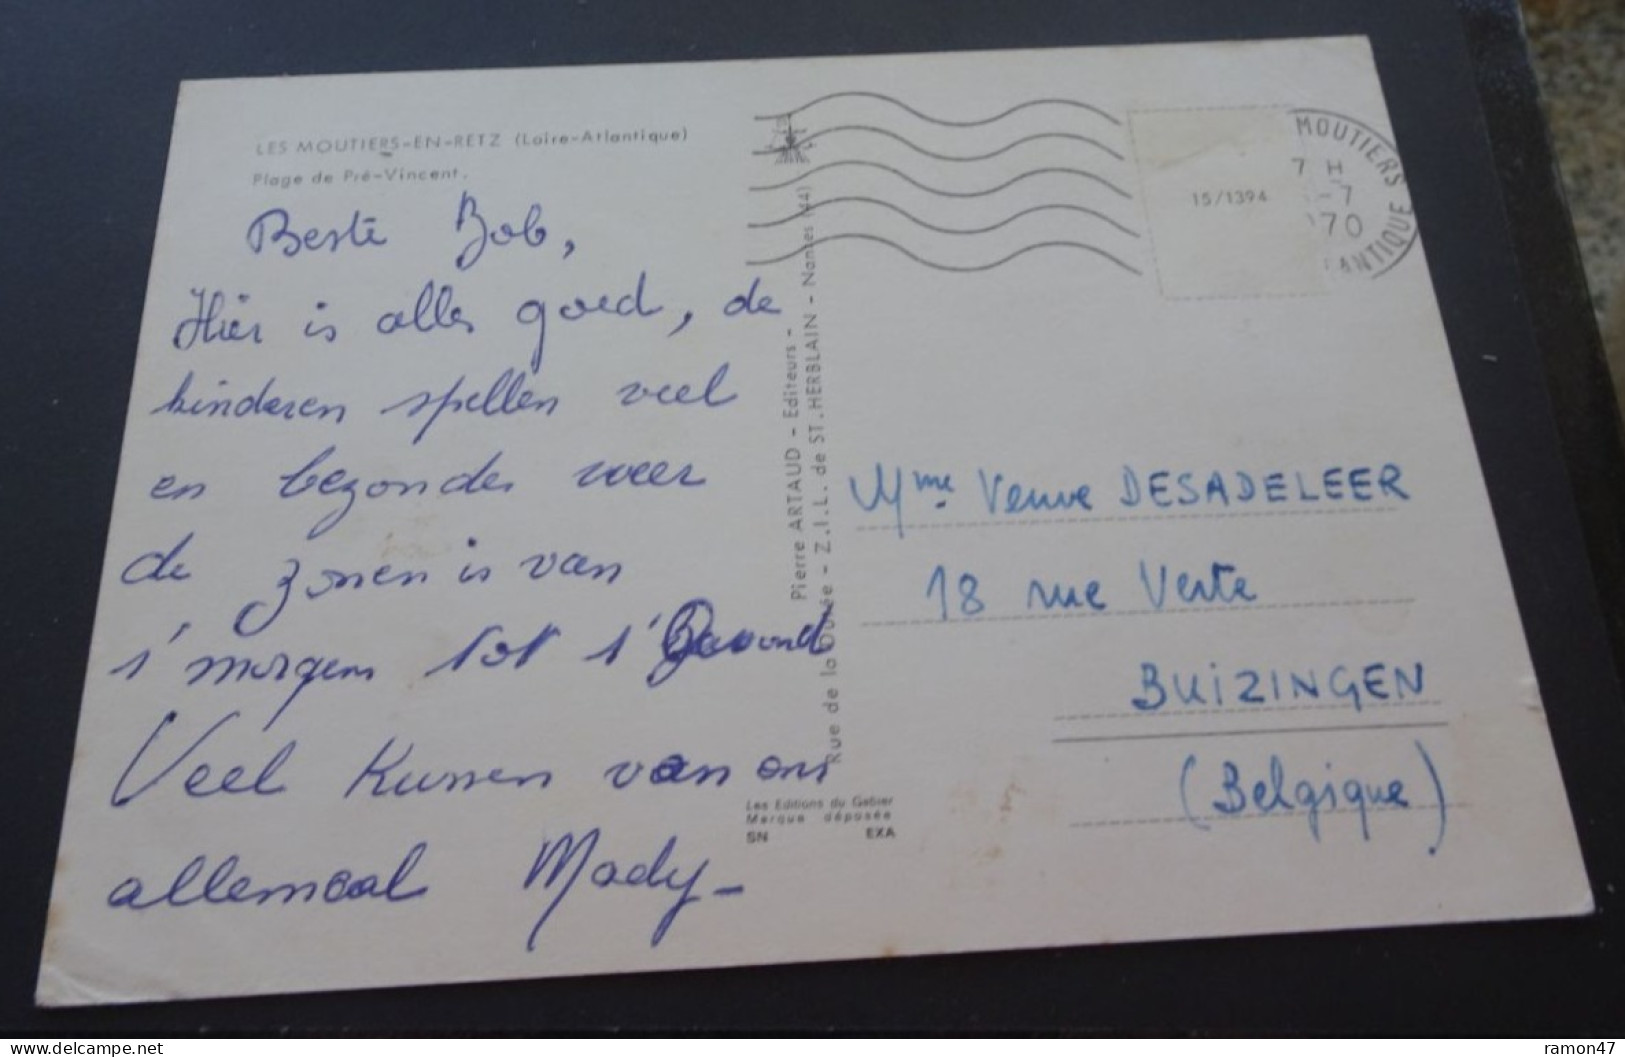 LES MOUTIERS-EN-RETZ (Loire-Atlantique)
Plage de Pré-Vincent.
Beste Bob,
Hier is alles goed, de
kinderen spellen veel
en bezonder weer
de zonen is van
s'morgens tot s'
Veel Kussen van ons
allemaal Mady-
Pierre ARTAUD - Editeurs -
Rue de la - Z.I.L. de ST.HERBLAIN - Nantes (44)
Les Editions du Gabier
Marque déposée
SN EXA
15/1394
MOUTIERS
7 H
-7
70
ANTIQUE
Mme Veuve DESADELEER
18 rue Verte
BUIZINGEN
(Belgique)
ramon47